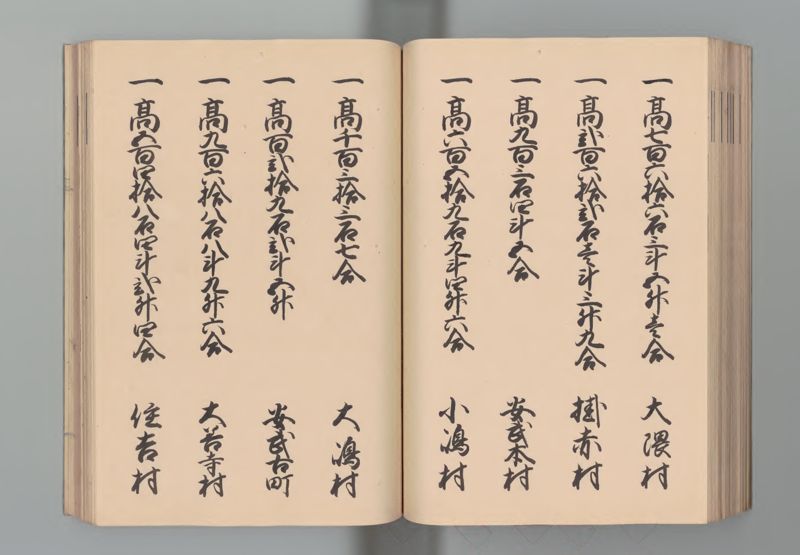 一 高七百六拾六石三斗五升壱合 大隈村
一 高弐百六拾弐石壱斗三升九合 掛赤村
一 高九百三石四斗五合 安武本村
一 高六百五拾九石九斗四升六合 小嶋村
一 高千百三拾三石七合 大嶋村
一 高百弐拾九石弐斗五升 安武古町
一 高九百六拾八石八斗九升六合 大善寺村
一 高五百四拾八石四斗弐升四合 住吉村